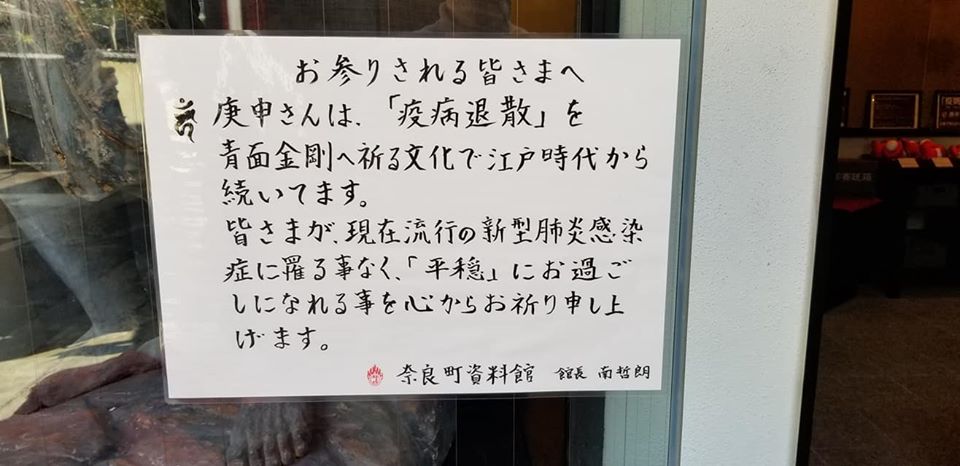 お参りされる皆さまへ
庚申さんは、「疫病退散」を
青面金剛へ祈る文化で江戸時代から
続いてます。
皆さまが、現在流行の新型肺炎感染
症に罹る事なく、「平穏」にお過ご
しになれる事を心からお祈り申し上
げます。
奈良町資料館 館長 南哲朗